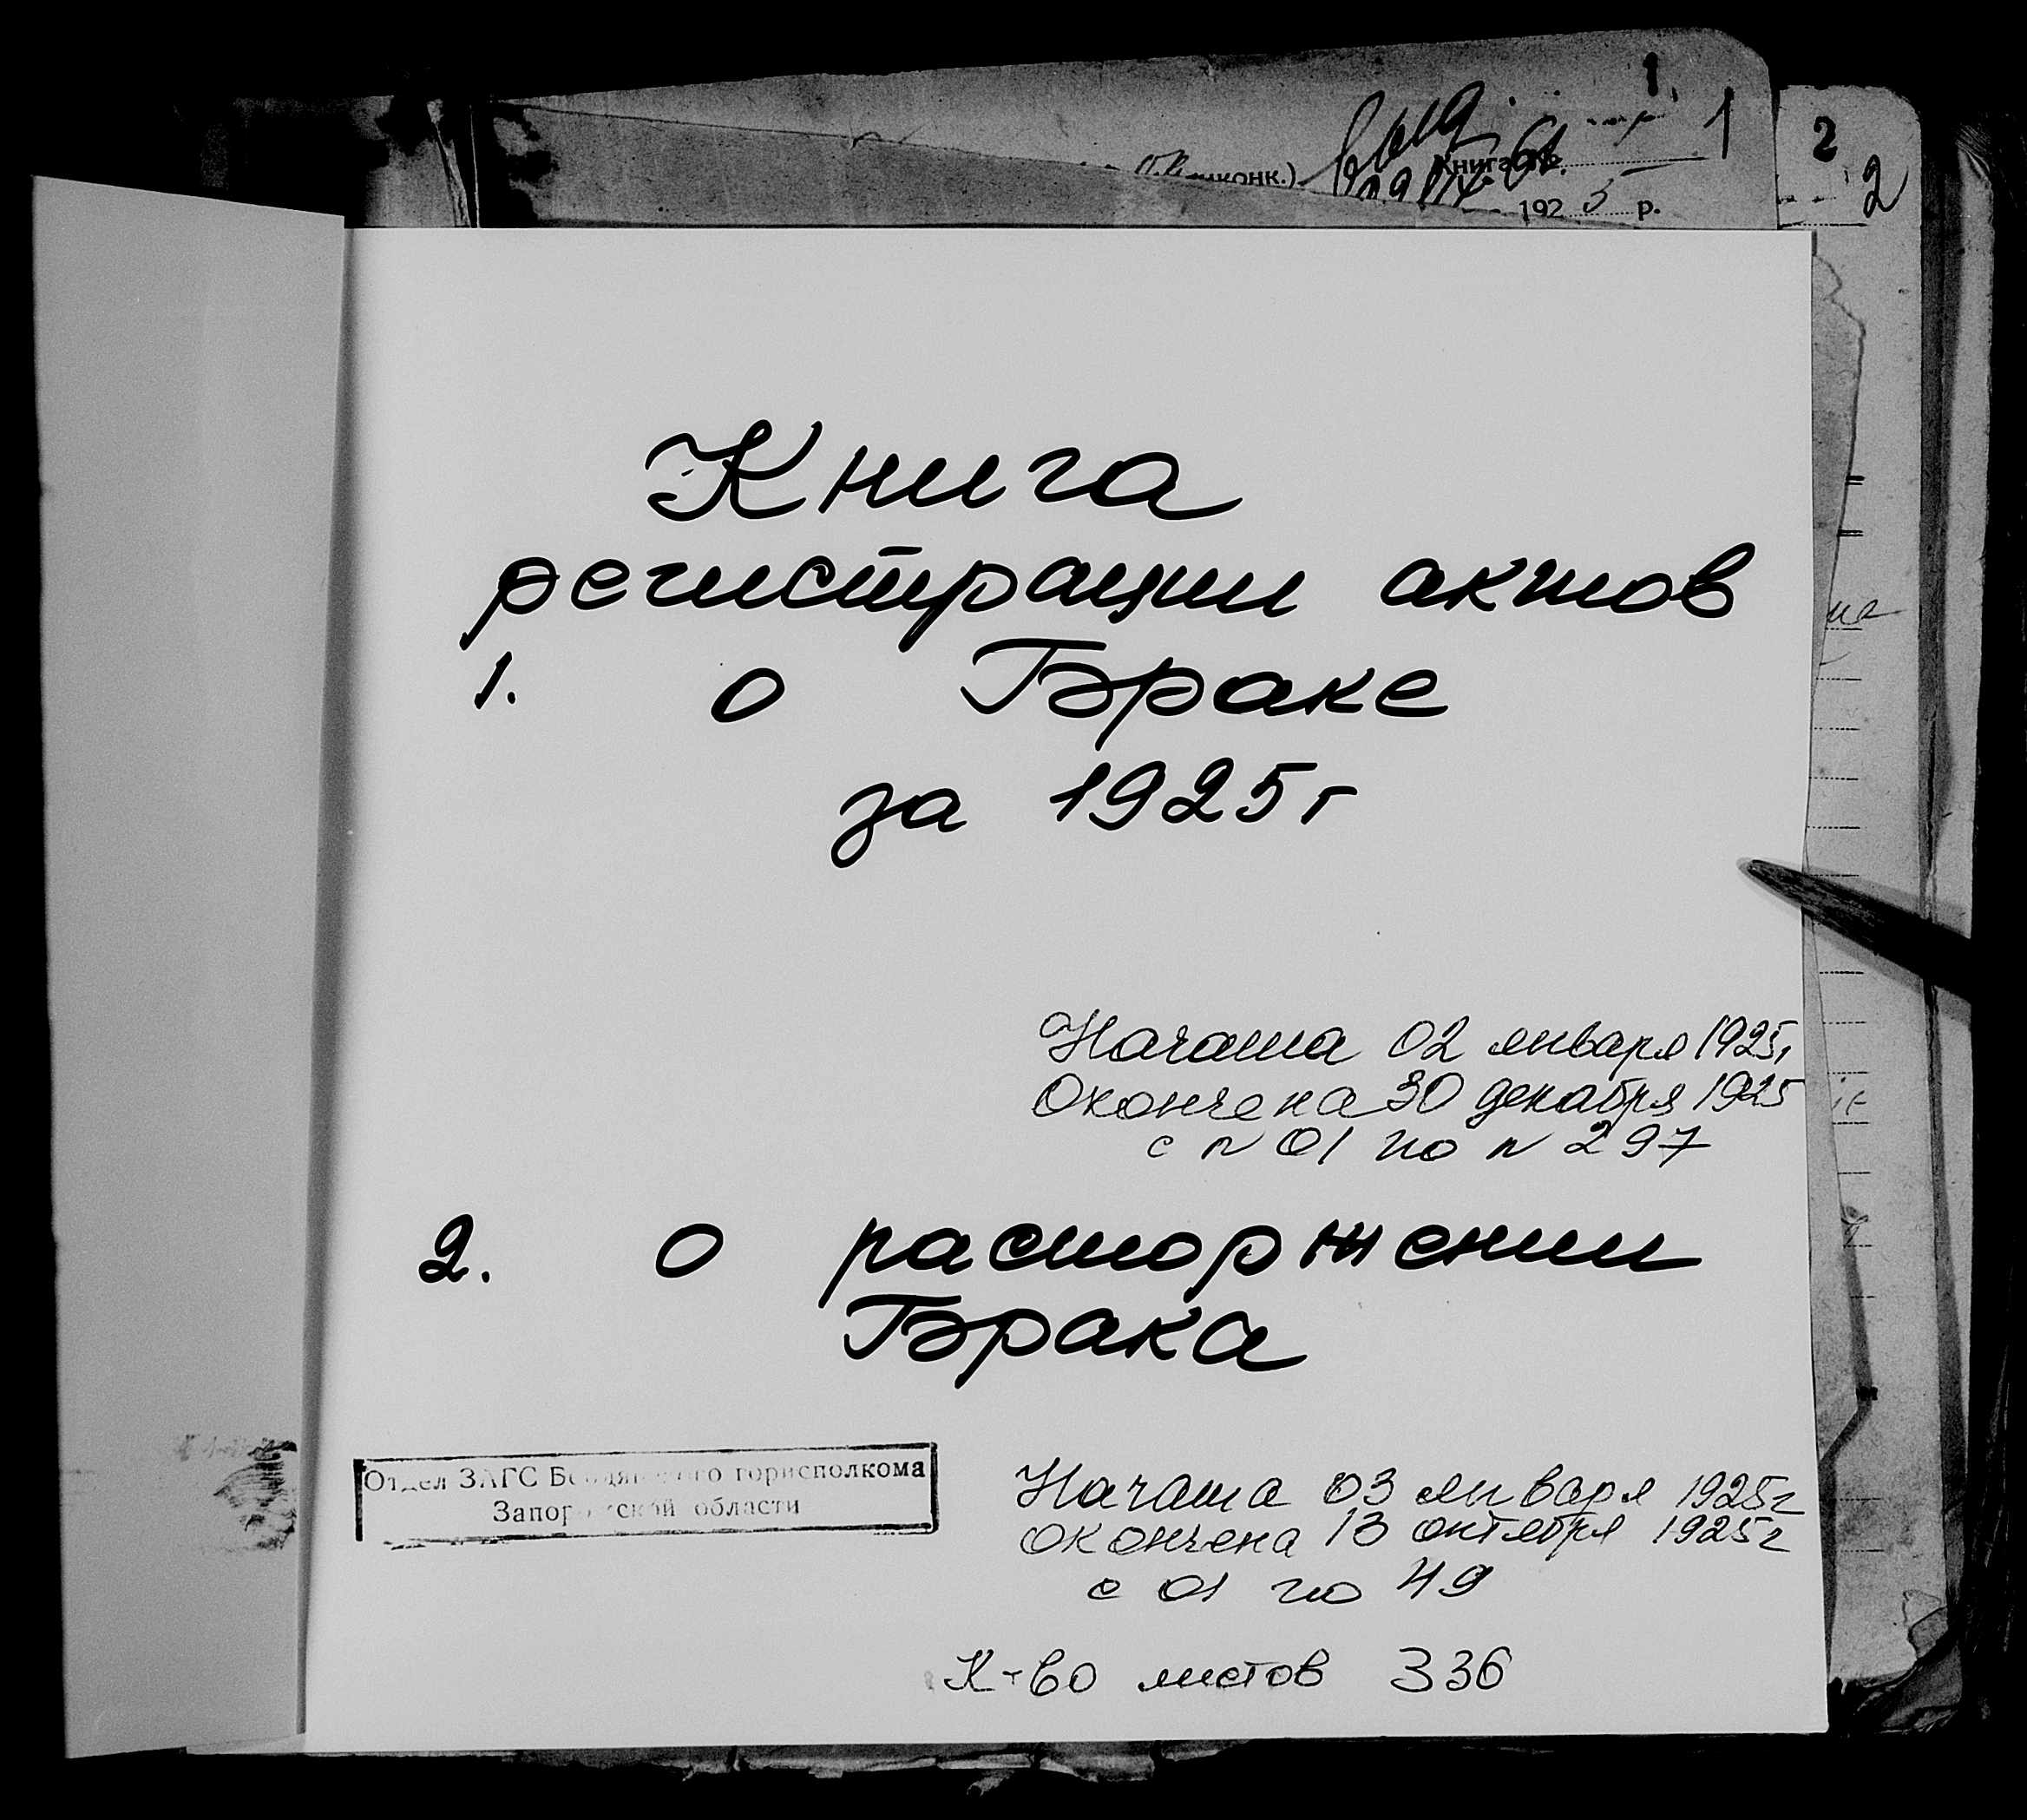 1
1
2
2
конк.)
Книга №
192 5 р.
Книга
регистрации актов
1. о Браке
за 1925г
Начата 02 января 1925г
Окончена 30 декабря 1925
с n 01 по n 297
2. о расторжении
Брака
Отдел ЗАГС Бердянского горисполкома
Запорожской области
Начата 03 января 1925г
окончена 13 октября 1925г
с 01 по 49
К-во листов 336